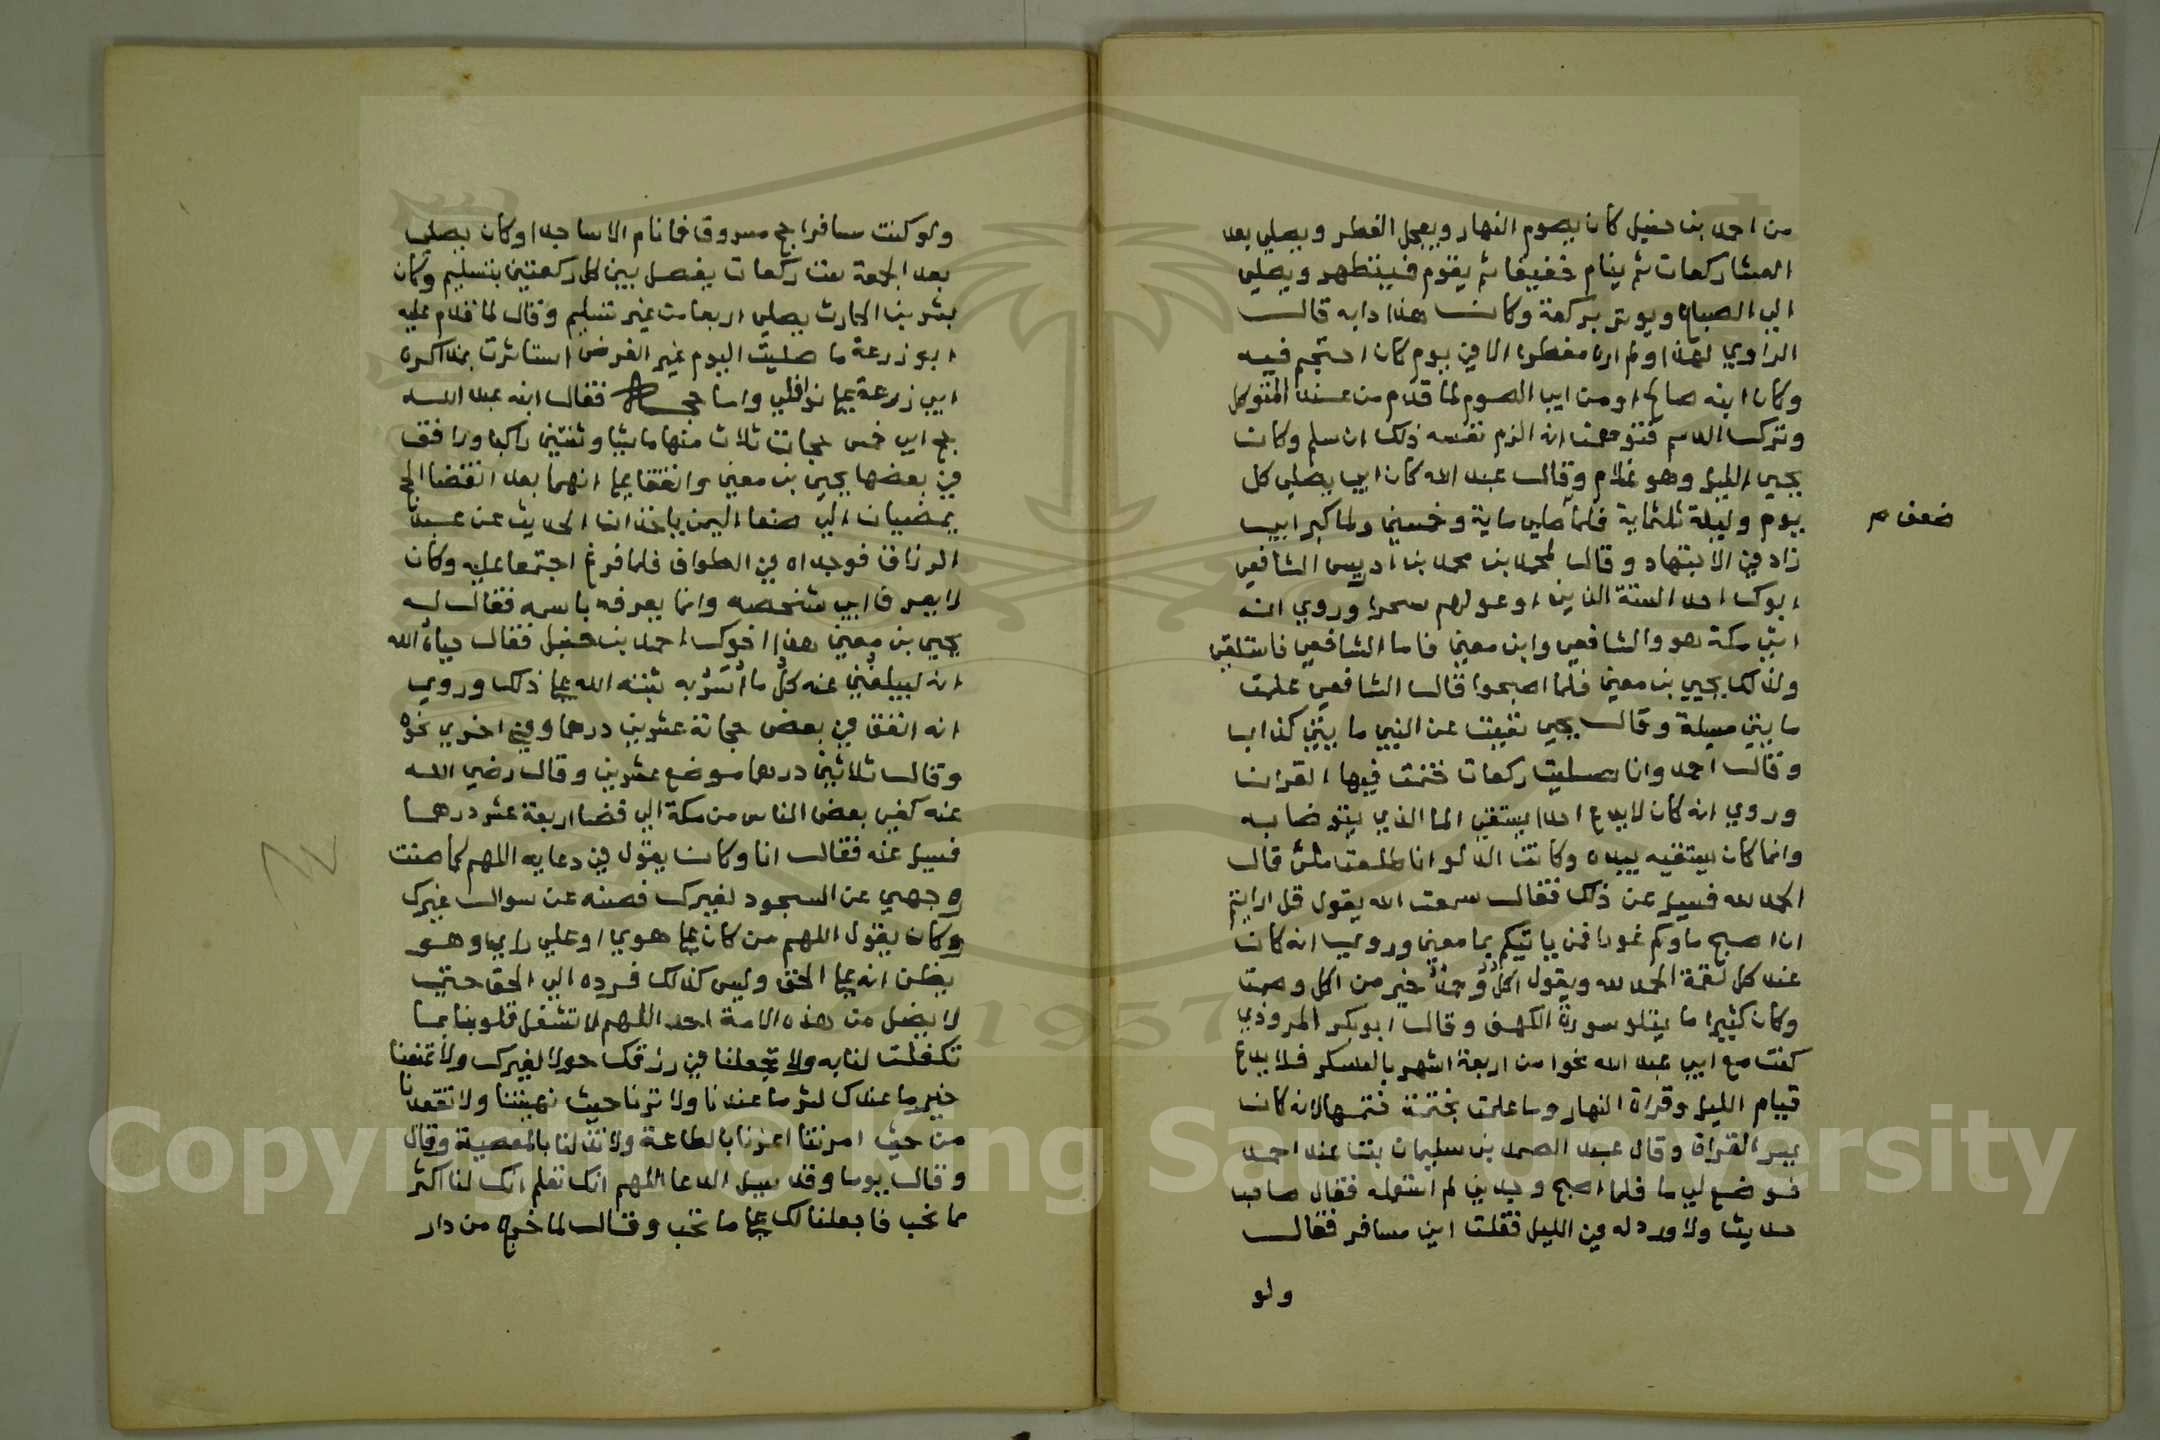 من احمد بن حنبل كان يصوم النهار ويعجل الفطر ويصلي بعد
العشا ركعات ثم ينام خفيفا ثم يقوم فيتطهر ويصلي
الي الصباح ويوتر بركعة وكان هذا دابه قال
الراوي لهذا ولم اره مفطرا الا في يوم كان احتجم فيه
وكان ابنه صالح او من ابي الصوم لما قدم من عند المتوكل
وترك الدسم فتوهمت انه الزم نفسه ذلك ان سلم وكان
يحيي الليل وهو غلام وقال عبد الله كان ابي يصلي كل
يوم وليلة ثلثماية فلما صلي ماية وخمسين ولما كبر ابي
ضعف م
زاد في الاجتهاد وقال لمحمد بن محمد بن ادريس الشافعي
ابوك احد الستة الذين ادعو لهم سحرا وروي انه
اتي مكة هو والشافعي وابن معين فاما الشافعي فاستلقي
وكذلك يحيي بن معين فلما اصبحوا قال الشافعي علمت
مايتي مسيلة وقال يحيي نفيت عن النبي مايتي كذاب
وقال احمد وانا صليت ركعات ختمت فيها القران
وروي انه كان لا يدع احدا يستقي الما الذي يتوضا به
وانما كان يستقيه بيده وكانت الدلو انا طلعت ملئ قال
الحمد لله فسيل عن ذلك فقال سمعت الله يقول قل ارايتم
ان اصبح ماوكم غورا فمن ياتيكم بما معين وروي انه كان
عند كل لقمة الحمد لله ويقول اكل وحمد خير من اكل وصمت
وكان كثيرا ما يتلو سورة الكهف وقال ابوبكر المروذي
كنت مع ابي عبد الله نحوا من اربعة اشهر بالعسكر فلا يدع
قيام الليل وقراة النهار وما علمت بختمة ختمها لانه كان
يسر القراة وقال عبد الصمد بن سليمان بتنا عند احمد
فوضع لي ما فلما اصبح وجدني لم استعمله فقال صاحب
حديث ولا ورد له في الليل فقلت اين مسافر فقال
ولو
ولو كنت مسافرا حج مسروق فما نام الا ساجدا وكان يصلي
بعد الجمعة ست ركعات يفصل بين كل ركعتين بتسليم وكان
بشر بن الحارث يصلي اربعا من غير تسليم وقال لما قدم عليه
ابو زرعة ما صليت اليوم غير الفرض استاثرت بمذاكرة
ابي زرعة علي نوافلي واما حجاته فقال ابنه عبد الله
حج ابي خمس حجات ثلاث منها ماشيا وثنتين راكبا ورافق
في بعضها يحيي بن معين واتفقا علي انهما بعد انقضا الحج
يمضيان الي صنعا اليمن ياخذان الحديث عن عبد
الرزاق فوجداه في الطواف فلما فرغ اجتمعا عليه وكان
لا يعرف ابي شخصه وانما يعرفه باسمه فقال له
يحيي بن معين هذا اخوك احمد بن حنبل فقال حياه الله
انه ليبلغني عنه كل ما اسر به ثبته الله علي ذلك وروي
انه انفق في بعض حجاته عشرين درهما وفي اخري نحوه
وقال ثلاثين درهما موضع عشرين وقال رضي الله
عنه كفي بعض الناس من مكة الي قضا اربعة عشر درهما
فسيل عنه فقال انا وكان يقول في دعايه اللهم كما صنت
وجهي عن السجود لغيرك فصنه عن سوال غيرك
وكان يقول اللهم من كان علي هوي او علي راي وهو
يظن انه علي الحق وليس كذلك فرده الي الحق حتي
لا يضل من هذه الامة احد اللهم لا تشغل قلوبنا بما
تكفلت لنا به ولا تجعلنا في رزقك خولا لغيرك ولا تمنعنا
خير ما عندك لشر ما عندنا ولا ترنا حيث نهيتنا ولا تفقدنا
من حيث امرتنا اعزنا بالطاعة ولا تذلنا بالمعصية وقال
وقال يوما وقد سيل الدعا اللهم انك تعلم انك لنا اكثر
مما نحب فاجعلنا لك علي ما تحب وقال لما خرج من دار
1957
Copyright © King Saud University